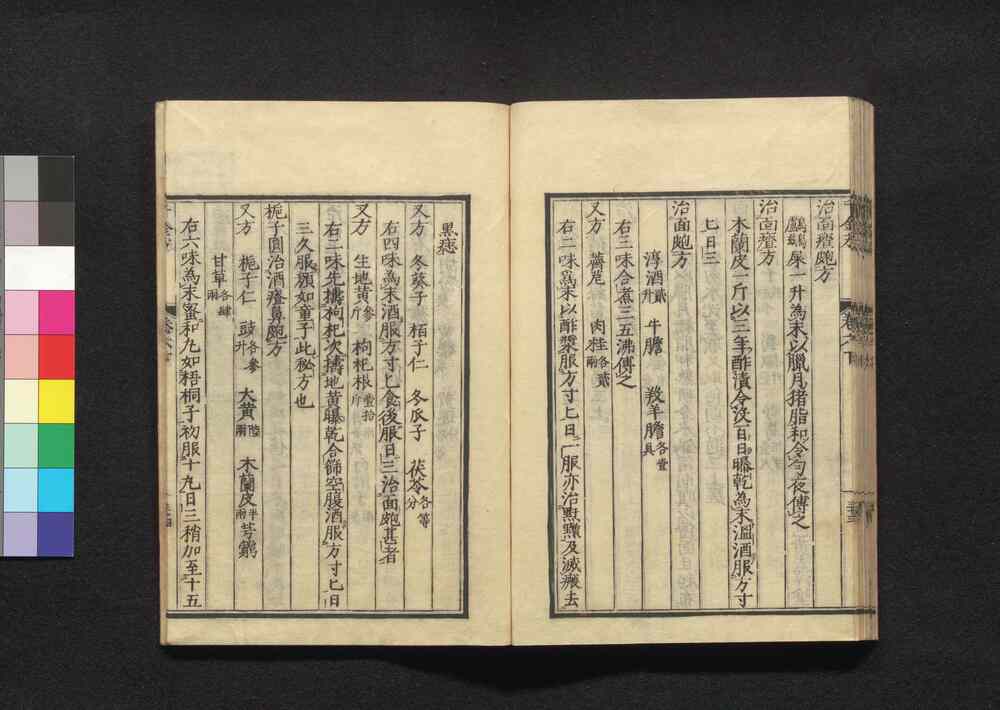 治面𤻘皰方
鸕鷀屎一升為末以臘月猪脂和令勻夜傅之
治面𤻘方
木蘭皮一斤以三年酢漬令没百日曝乾為末溫酒服方寸
匕日三
治面皰方
淳酒貳升 牛膽 羖羊膽各壹具
右三味合煮三五沸傅之
又方 薺苨 肉桂各貳兩
右二味為末以酢漿服方寸匕日一服亦治䵟䵳及滅瘢去
黑痣
又方 冬葵子 栢子仁 冬瓜子 茯苓各等分
右四味為末酒服方寸匕食後服日三治面皰甚者
又方 生地黄參斤 枸杞根壹拾斤
右二味先擣枸杞次擣地黄曝乾合篩空腹酒服方寸匕日
三久服顔如童子此秘方也
梔子圓治酒𤻘鼻皰方
又方 梔子仁 豉各參升 大黄陸兩 木蘭皮半兩 芎藭
甘草各肆兩
右六味為末蜜和丸如梧桐子初服十丸日三稍加至十五